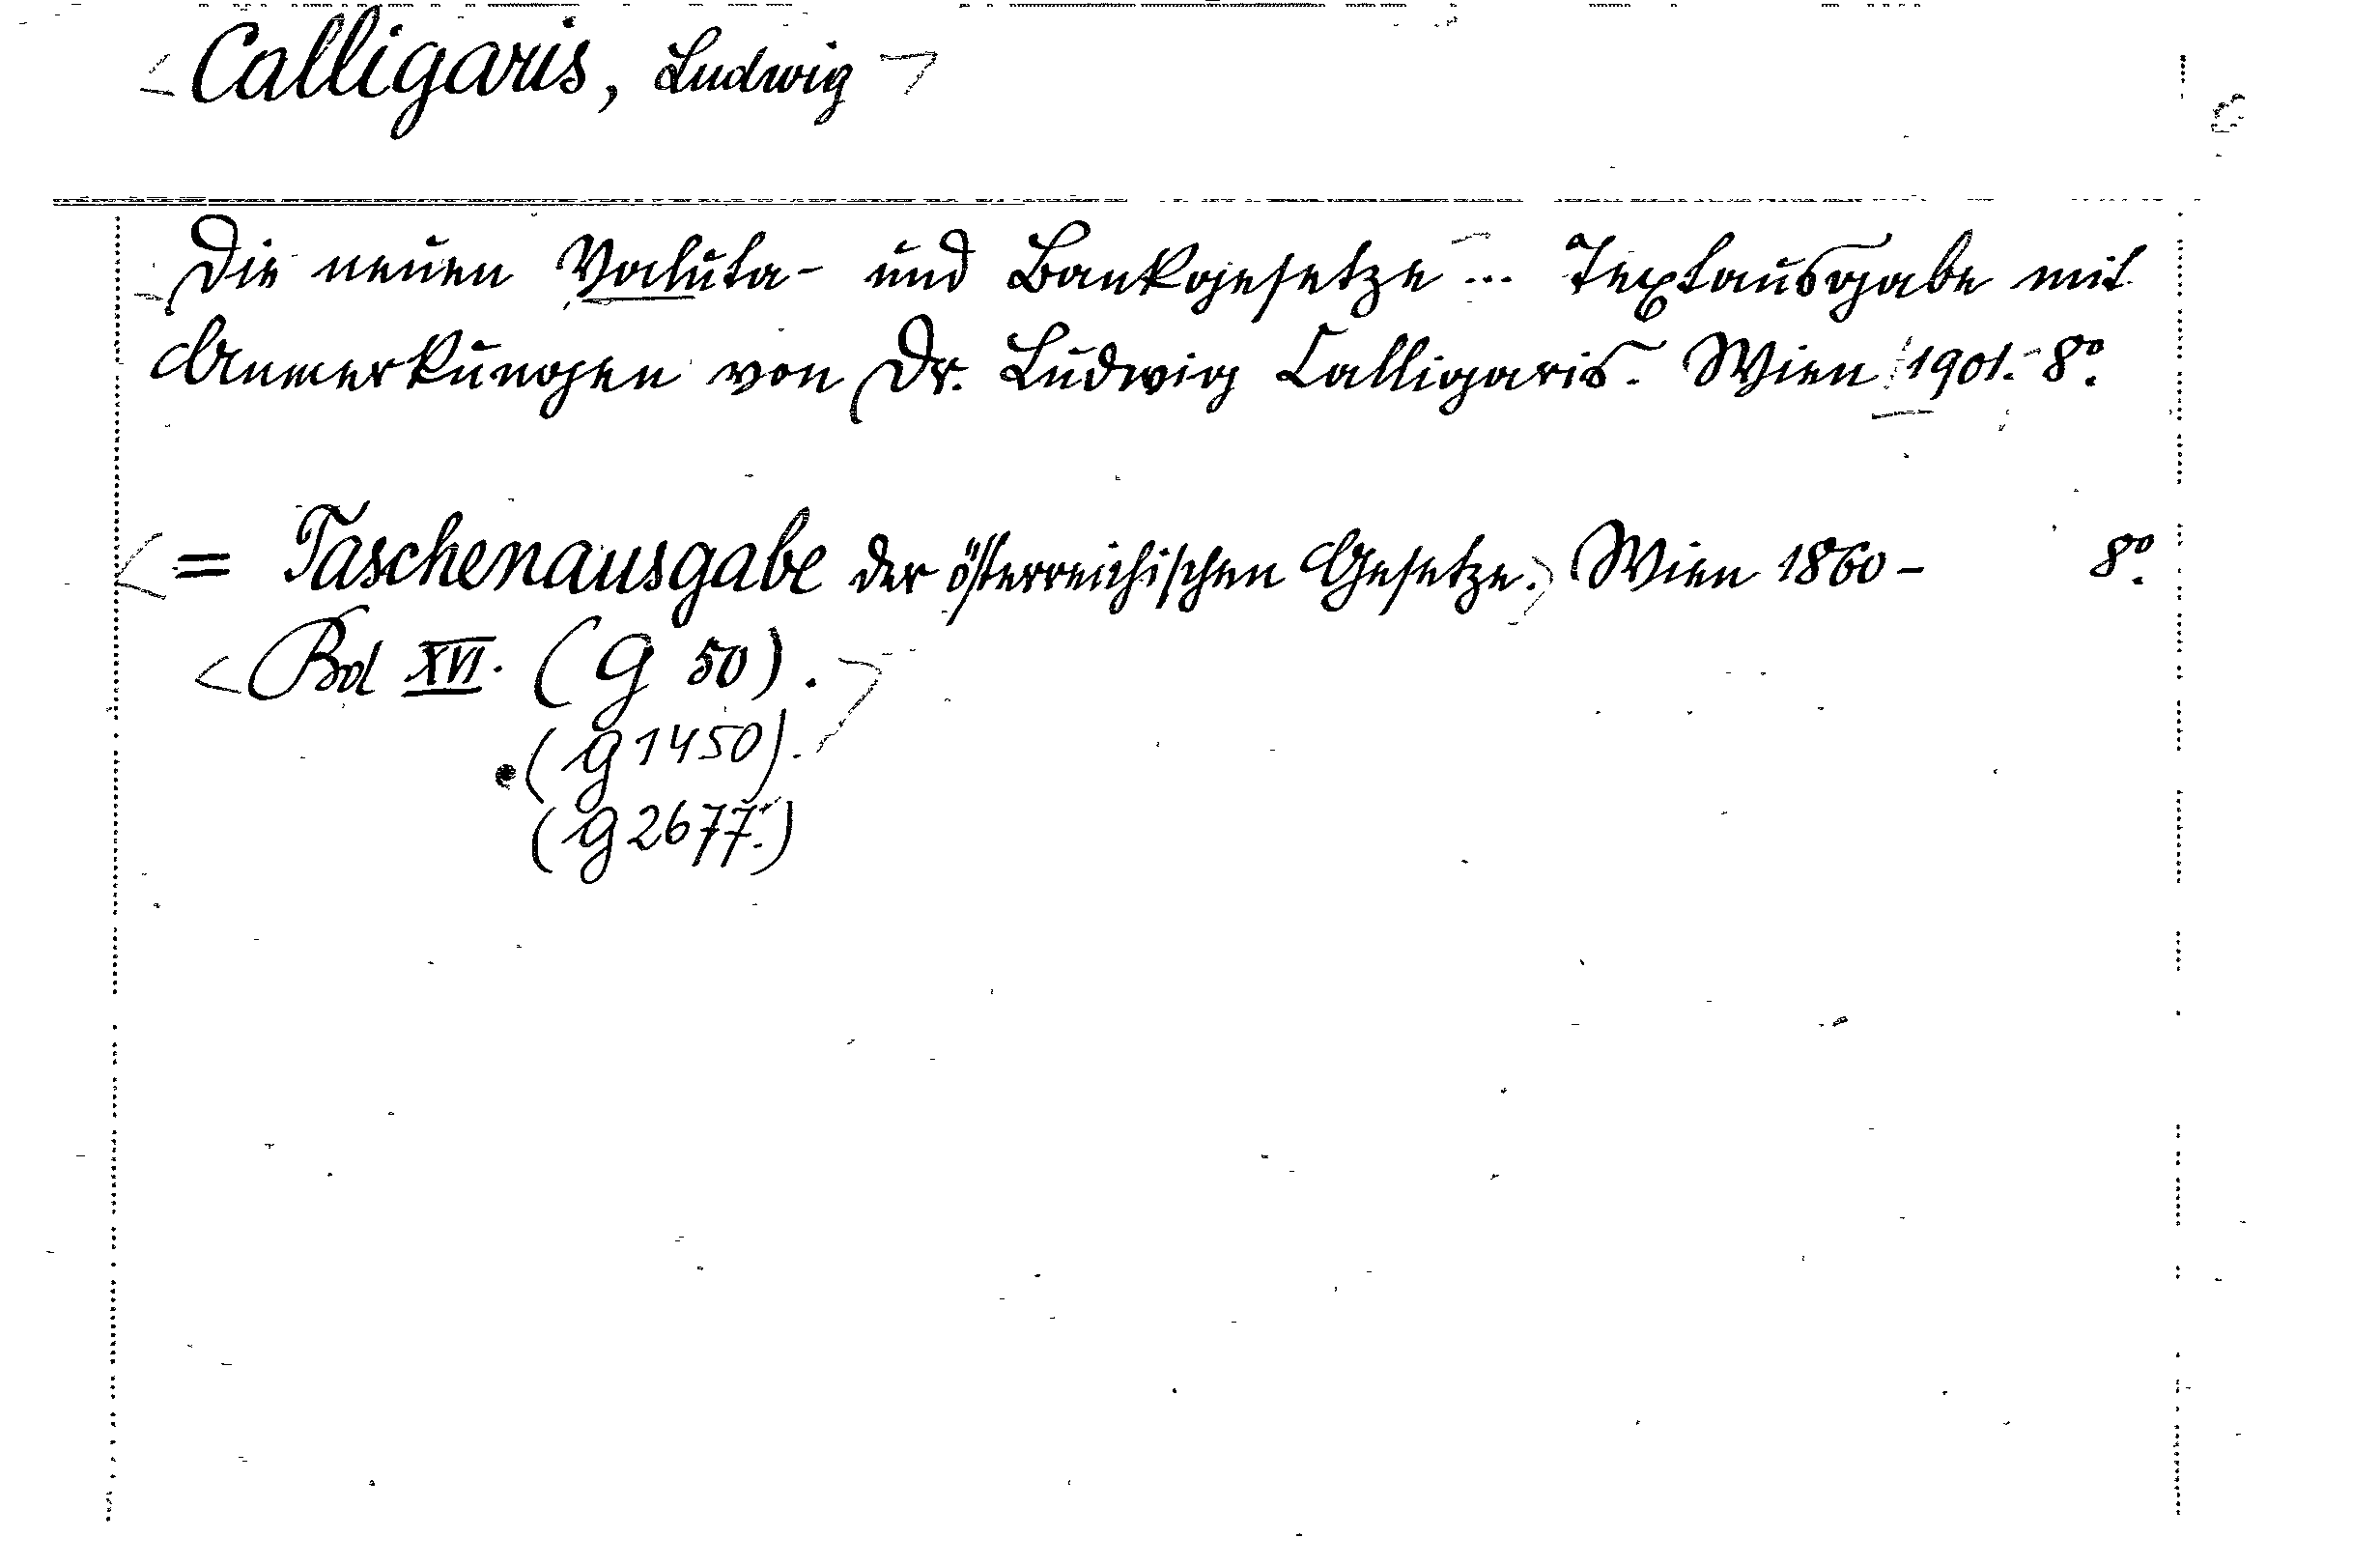 <Calligaris, Ludwig>
Die neuen Valuta- und Bankgesetze ... Textausgabe mit
Anmerkungen von Dr. Ludwig Calligaris. Wien 1901. 8°.
<= Taschenausgabe der österreichischen Gesetze.> Wien 1860- 8°.
<Bd XVI. (G 50).>
(G 1450).
(G 2677.)